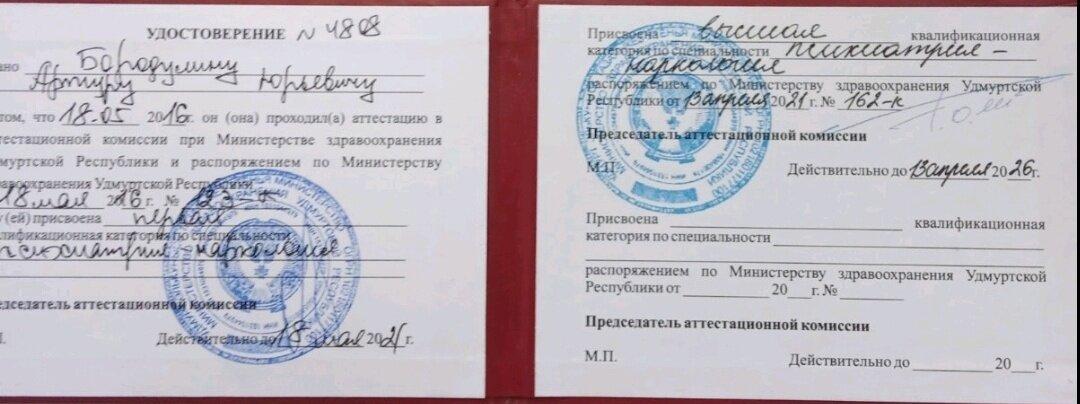 УДОСТОВЕРЕНИЕ № 4808
ано Бородулину
Артуру Юрьевичу
том, что 18.05 2016 г. он (она) проходил(а) аттестацию в
тестационной комиссии при Министерстве здравоохранения
дмуртской Республики и распоряжением по Министерству
равоохранения Удмуртской Республики
18 мая 2016 г. № 123-к
у (ей) присвоена первая
алификационная категория по специальности
психиатрия - наркология
редседатель аттестационной комиссии
П. Действительно до 18 мая 2021 г.
Присвоена высшая квалификационная
категория по специальности психиатрия -
наркология
распоряжением по Министерству здравоохранения Удмуртской
Республики от 13 апреля 2021 г. № 162-к
Председатель аттестационной комиссии
М.П. Действительно до 13 апреля 2026 г.
Присвоена квалификационная
категория по специальности
распоряжением по Министерству здравоохранения Удмуртской
Республики от 20 г. №
Председатель аттестационной комиссии
М.П. Действительно до 20 г.